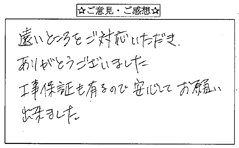 ☆ご意見・ご感想☆
遠いところをご対応いただき、
ありがとうございました
工事保証も有るので安心してお願い
出来ました